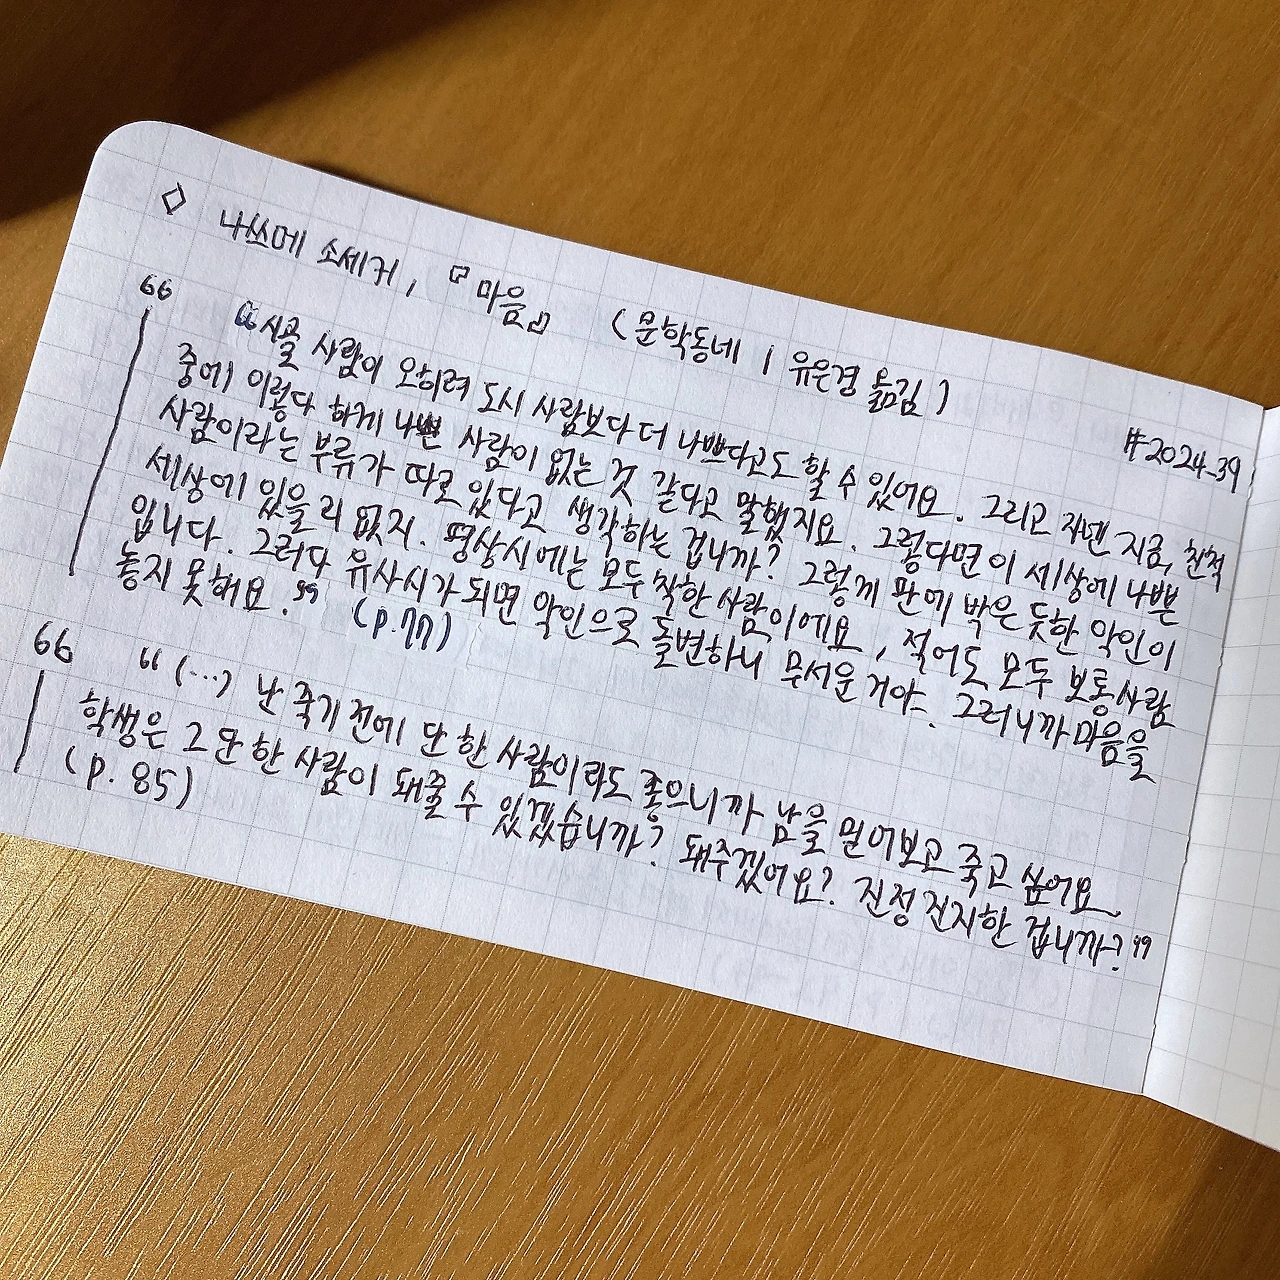 ◇ 나쓰메 소세키, 『마음』 (문학동네 | 유은경 옮김)
#2024-39
“ “시골 사람이 오히려 도시 사람보다 더 나쁘다고도 할 수 있어요. 그리고 자넨 지금, 친척
중에 이렇다 하게 나쁜 사람이 없는 것 같다고 말했지요. 그렇다면 이 세상에 나쁜
사람이라는 부류가 따로 있다고 생각하는 겁니까? 그렇게 판에 박은 듯한 악인이
세상에 있을 리 없지. 평상시에는 모두 착한 사람이에요, 적어도 모두 보통사람
입니다. 그러다 유사시가 되면 악인으로 돌변하니 무서운 거야. 그러니까 마음을
놓지 못해요.” (p.77)
“ “(...) 난 죽기 전에 단 한 사람이라도 좋으니까 남을 믿어보고 죽고 싶어요.
학생은 그 단 한 사람이 돼줄 수 있겠습니까? 돼주겠어요? 진정 진지한 겁니까?”
(p. 85)